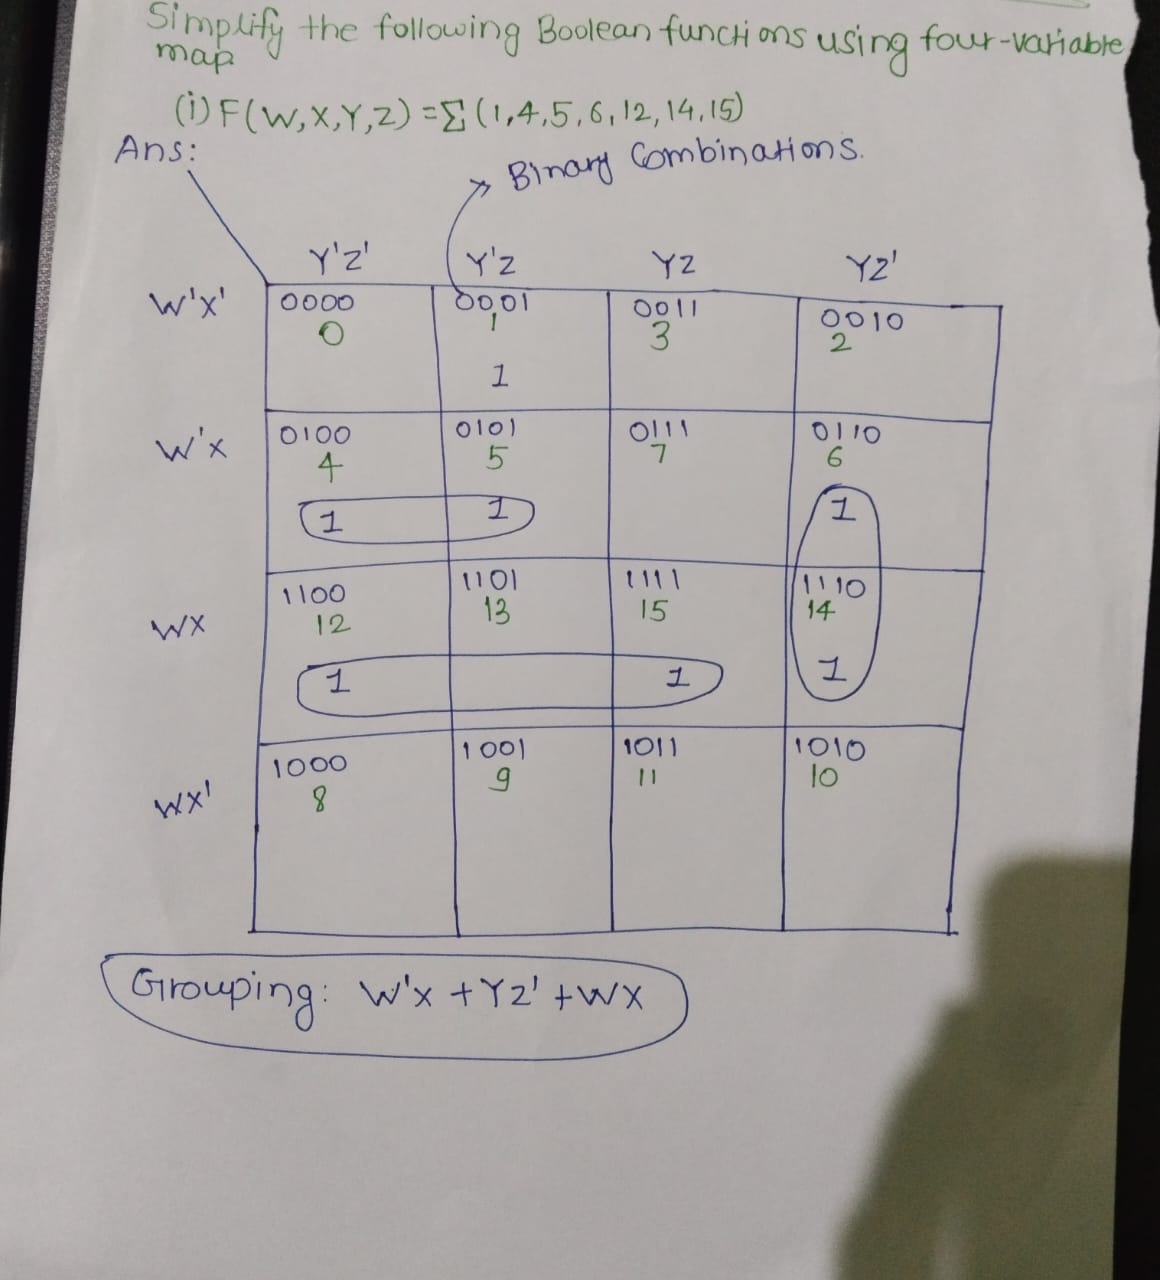 Simplify the following Boolean functions using four-variable
map
(i) F(W,X,Y,Z) = Σ (1,4,5,6,12,14,15)
Ans:
Binary Combinations.
Y'Z' Y'Z YZ YZ'
W'X' 0000 0001 0011 0010
0 1 3 2
1
W'X 0100 0101 0111 0110
4 5 7 6
1 1 1
WX 1100 1101 1111 1110
12 13 15 14
1 1 1
WX' 1000 1001 1011 1010
8 9 11 10
Grouping: W'X + YZ' + WX